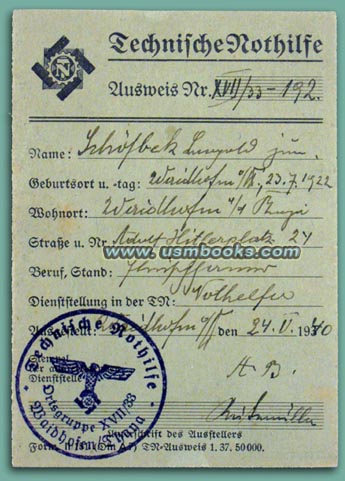 Technische Nothilfe
Ausweis Nr. XVII/33-192.
Name: Schölbek Leopold jun.
Geburtsort u. -tag: Waidhofen a/Th, 23.7.1922
Wohnort: Waidhofen a/d Thaya
Straße u. Nr. Adolf Hitlerplatz 24
www.usmbooks.com
Beruf, Stand:
Dienststellung in der TN: Nothelfer
Ausgestellt: Waidhofen den 24. V. 1940
Stempel
der
Dienststelle
Technische Nothilfe
Ortsgruppe XVII/33
Waidhofen/Thaya
Unterschrift des Ausstellers
TN-Ausweis 1. 37. 50000.